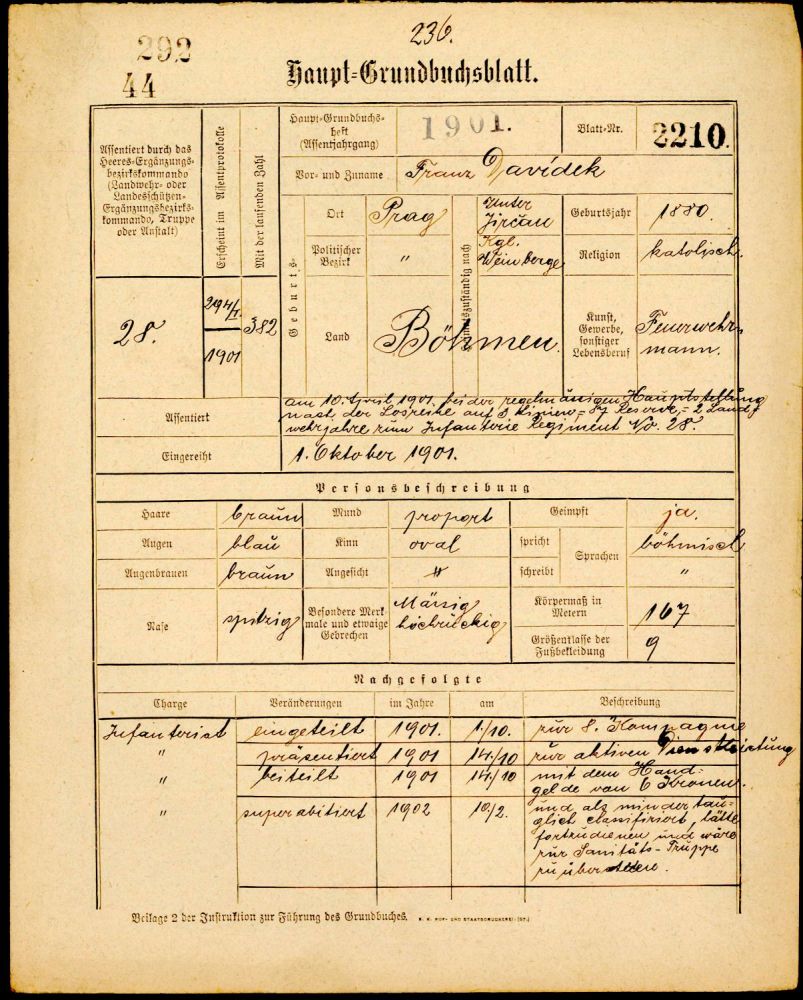 292
236.
44
Haupt-Grundbuchsblatt.
Assentiert durch das
Heeres-Ergänzungs-
bezirkskommando
(Landwehr- oder
Landesschützen-
Ergänzungsbezirks-
kommando, Truppe
oder Anstalt)
Erscheint im Assentprotokolle
Mit der laufenden Zahl
Haupt-Grundbuchs-
heft
(Assentjahrgang)
1901.
Blatt-Nr.
2210.
Vor- und Zuname
Franz Davídek
Geburts-
Ort
Prag
Unter
Jirčan
Geburtsjahr
1880.
Politischer
Bezirk
"
Kgl.
Weinberge
Religion
katolisch.
28.
294/I.
1901
382
Land
Böhmen.
Kunst,
Gewerbe,
sonstiger
Lebensberuf
Feuerwehr-
mann.
Assentiert
am 10. April 1901. bei der regelmässigen Hauptstellung
nach der Losreihe auf 3 Linien = 87 Reserve = 2 Land-
wehrjahre zum Infanterie Regiment No. 28.
Eingereiht
1. Oktober 1901.
Personsbeschreibung
Haare
braun
Mund
proport
Geimpft
ja.
Augen
blau
Kinn
oval
spricht
Sprachen
böhmisch
Augenbrauen
braun
Angesicht
"
schreibt
"
Nase
spitzig
Besondere Merk-
male und etwaige
Gebrechen
Mässig
hochrückig
Körpermaß in
Metern
167
Größenklasse der
Fußbekleidung
9
Nachgefolgte
Charge
Veränderungen
im Jahre
am
Beschreibung
Infanterist
eingeteilt
1901.
1./10.
zur 8. Kompagnie
"
präsentiert
1901
14./10
zur aktiven Dienstleistung
"
beiteilt
1901
14./10
mit dem Hand-
gelde von 6 Kronen.
"
superabitiert
1902
10/2.
und als mindertau-
glich classifiziert, hätte
fortzudienen und wäre
zur Sanitäts-Truppe
zu übersetzen.
Beilage 2 der Instruktion zur Führung des Grundbuches.
K. K. HOF- UND STAATSDRUCKEREI.